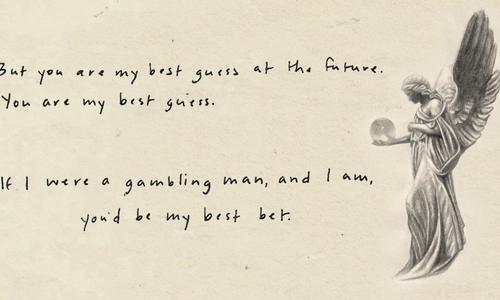 But you are my best guess at the future.
You are my best guess.
If I were a gambling man, and I am,
you'd be my best bet.